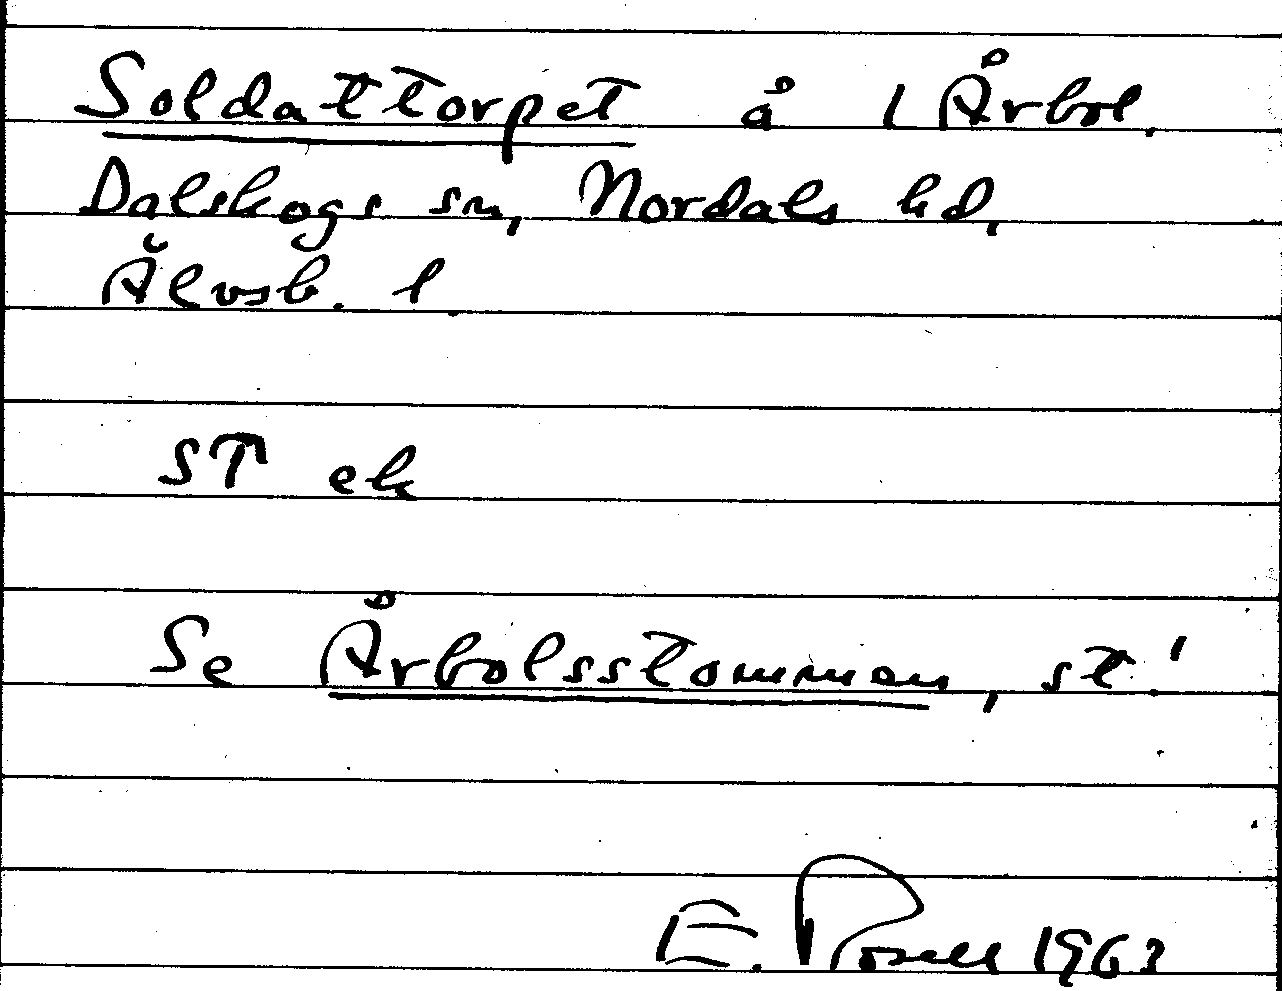 Soldattorpet å 1 Årbol.
Dalskogs sn, Nordals hd,
Älvsb. l.
ST ek
Se Årbolsstommen, st!
E. Rosell 1963